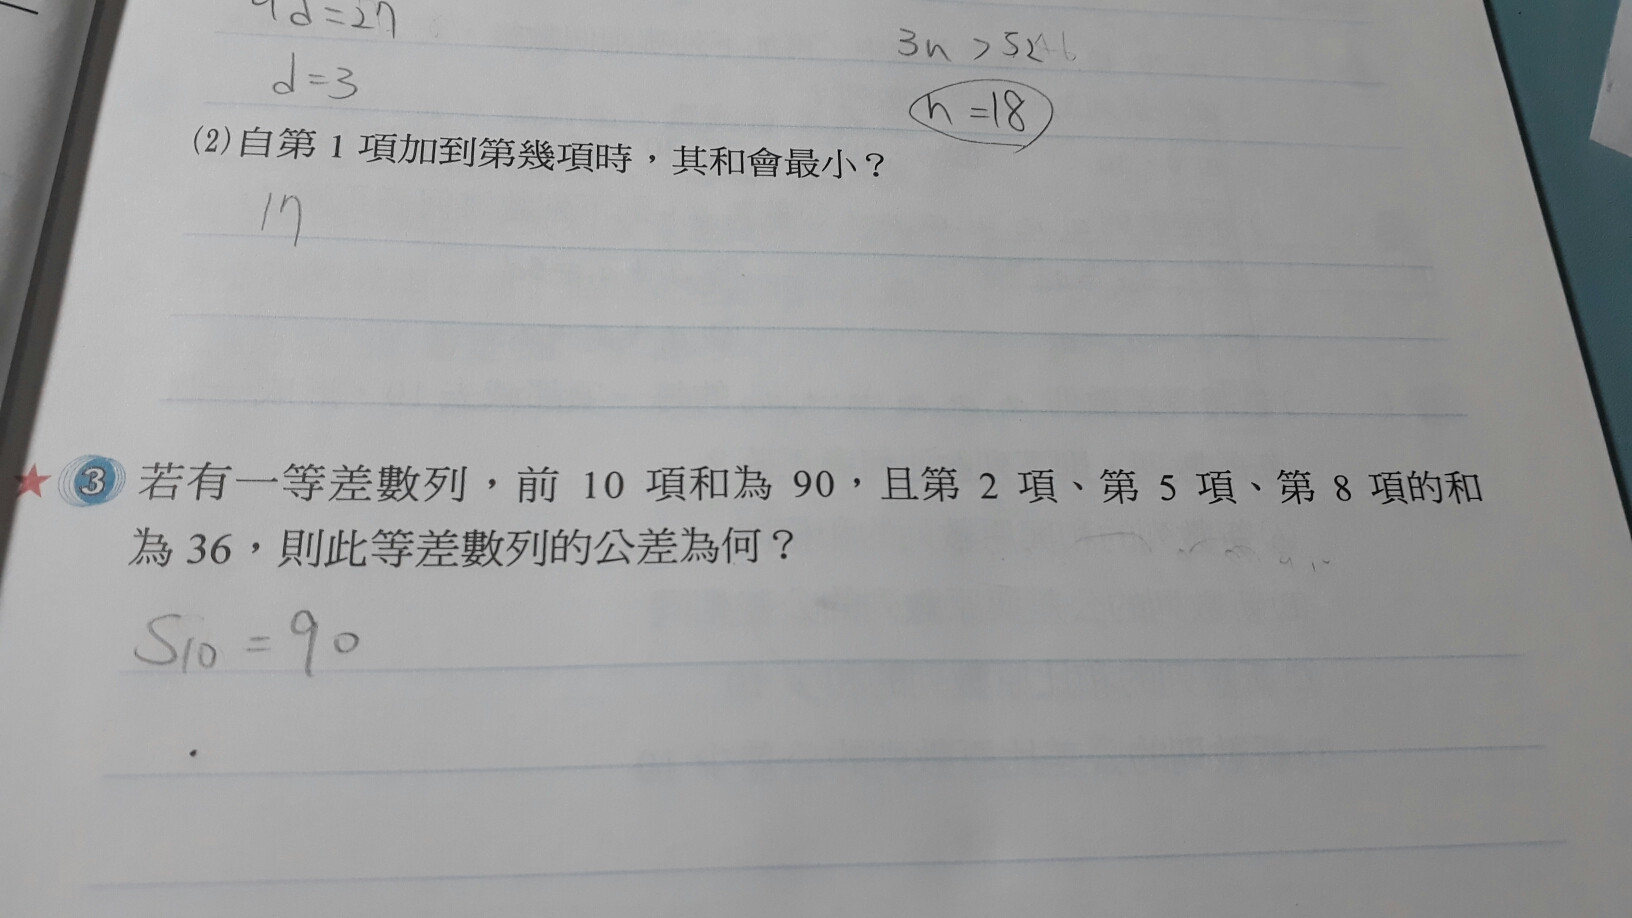 9d=27
d=3
3n > 52
n=18
(2)自第 1 項加到第幾項時，其和會最小？
17
3 若有一等差數列，前 10 項和為 90，且第 2 項、第 5 項、第 8 項的和
為 36，則此等差數列的公差為何？
S10 = 90